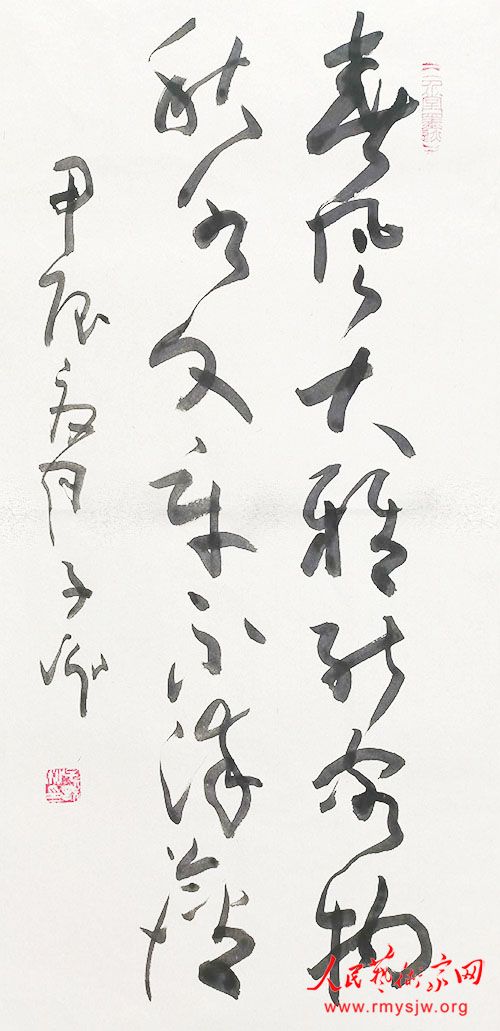 春風大雅能容物
秋水文章不染塵
甲辰夏月子
人民藝術家网
www.rmysjw.org